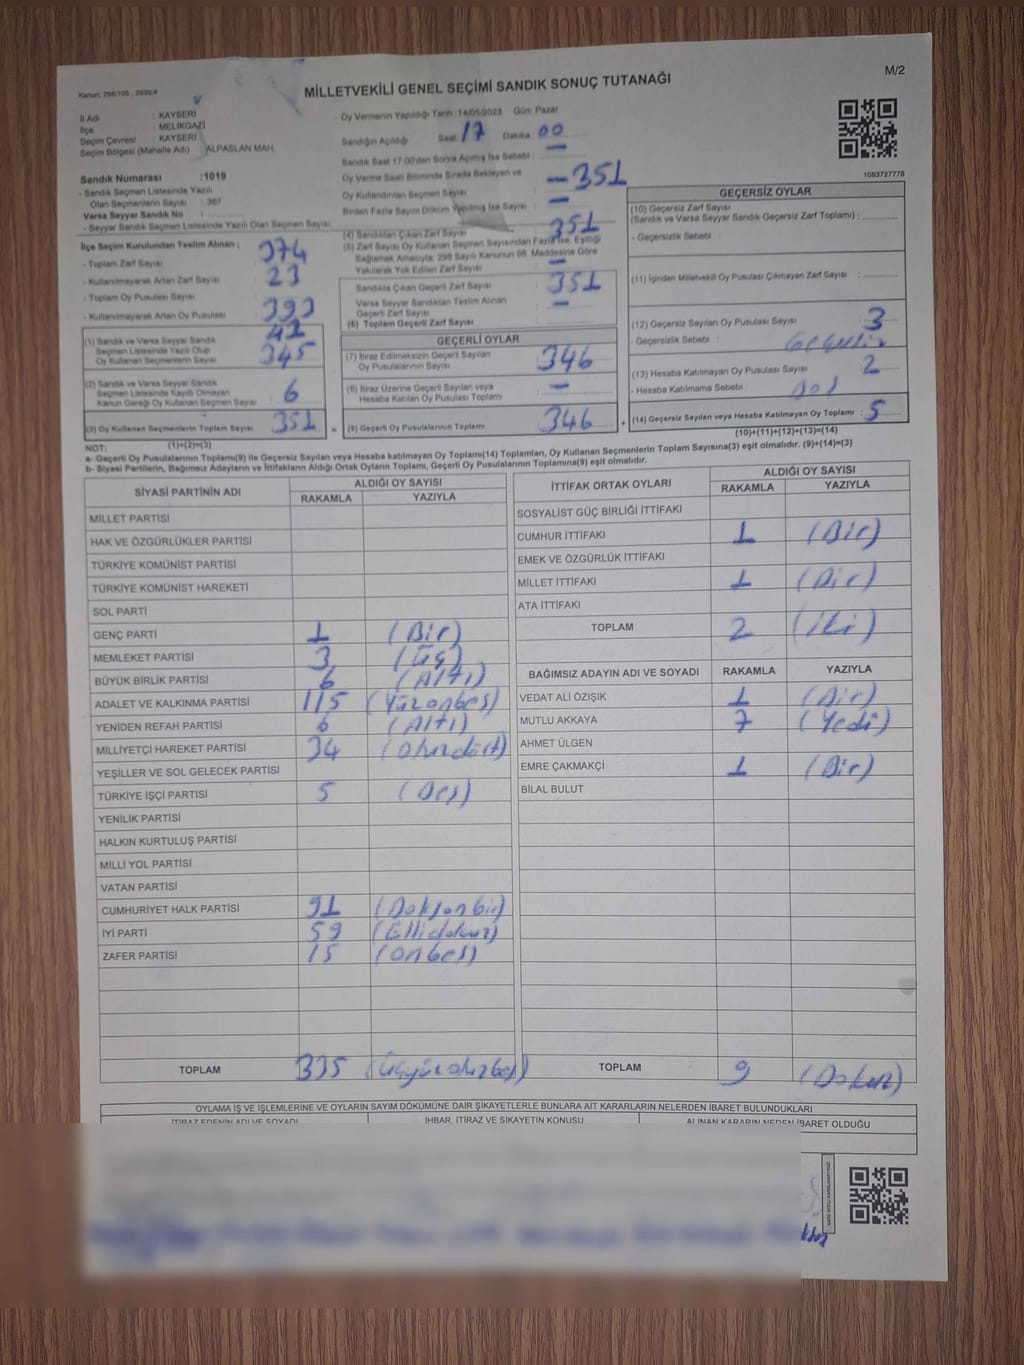 M/2
MİLLETVEKİLİ GENEL SEÇİMİ SANDIK SONUÇ TUTANAĞI
İl Adı : KAYSERİ
İlçe : MELİKGAZİ
Seçim Çevresi : KAYSERİ
Seçim Bölgesi (Mahalle Adı) : ALPASLAN MAH.
Sandık Numarası : 1019
- Sandık Seçmen Listesinde Yazılı
Olan Seçmenlerin Sayısı : 367
Varsa Seyyar Sandık No :
- Seyyar Sandık Seçmen Listesinde Yazılı Olan Seçmen Sayısı :
İlçe Seçim Kurulundan Teslim Alınan ;
- Toplam Zarf Sayısı : 374
- Kullanılmayarak Artan Zarf Sayısı : 23
- Toplam Oy Pusulası Sayısı : 393
- Kullanılmayarak Artan Oy Pusulası : 42
(1) Sandık ve Varsa Seyyar Sandık
Seçmen Listesinde Yazılı Olup
Oy Kullanan Seçmenlerin Sayısı : 345
(2) Sandık ve Varsa Seyyar Sandık
Seçmen Listesinde Kayıtlı Olmayan
Kanun Gereği Oy Kullanan Seçmen Sayısı : 6
(3) Oy Kullanan Seçmenlerin Toplam Sayısı : 351
Oy Vermenin Yapıldığı Tarih :14/05/2023 Gün: Pazar
Sandığın Açıldığı Saat 17 Dakika 00
Sandık Saat 17.00'den Sonra Açılmış İse Sebebi : —
Oy Verme Saati Bitiminde Sırada Bekleyen ve
Oy Kullandırılan Seçmen Sayısı : — 351
Birden Fazla Sayım Döküm Yapılmış İse Sayısı : —
(4) Sandıktan Çıkan Zarf Sayısı : 351
(5) Zarf Sayısı Oy Kullanan Seçmen Sayısından Fazla İse, Eşitliği
Sağlamak Amacıyla, 298 Sayılı Kanunun 98. Maddesine Göre
Yakılarak Yok Edilen Zarf Sayısı : —
Sandıkta Çıkan Geçerli Zarf Sayısı : 351
Varsa Seyyar Sandıktan Teslim Alınan
Geçerli Zarf Sayısı : —
(6) Toplam Geçerli Zarf Sayısı
GEÇERLİ OYLAR
(7) İtiraz Edilmeksizin Geçerli Sayılan
Oy Pusulalarının Sayısı : 346
(8) İtiraz Üzerine Geçerli Sayılan veya
Hesaba Katılan Oy Pusulası Toplamı : —
(9) Geçerli Oy Pusulalarının Toplamı : 346
1083727778
GEÇERSİZ OYLAR
(10) Geçersiz Zarf Sayısı
(Sandık ve Varsa Seyyar Sandık Geçersiz Zarf Toplamı) :
- Geçersizlik Sebebi :
(11) İçinden Milletvekili Oy Pusulası Çıkmayan Zarf Sayısı :
(12) Geçersiz Sayılan Oy Pusulası Sayısı : 3
- Geçersizlik Sebebi :
(13) Hesaba Katılmayan Oy Pusulası Sayısı : 2
- Hesaba Katılmama Sebebi :
(14) Geçersiz Sayılan veya Hesaba Katılmayan Oy Toplamı : 5
(10)+(11)+(12)+(13)=(14)
NOT: (1)+(2)=(3)
a- Geçerli Oy Pusulalarının Toplamı(9) ile Geçersiz Sayılan veya Hesaba katılmayan Oy Toplamı(14) Toplamları, Oy Kullanan Seçmenlerin Toplam Sayısına(3) eşit olmalıdır. (9)+(14)=(3)
b- Siyasi Partilerin, Bağımsız Adayların ve İttifakların Aldığı Ortak Oyların Toplamı, Geçerli Oy Pusulalarının Toplamına(9) eşit olmalıdır.
SİYASİ PARTİNİN ADI ALDIĞI OY SAYISI
RAKAMLA YAZIYLA
MİLLET PARTİSİ
HAK VE ÖZGÜRLÜKLER PARTİSİ
TÜRKİYE KOMÜNİST PARTİSİ
TÜRKİYE KOMÜNİST HAREKETİ
SOL PARTİ
GENÇ PARTİ 1 (Bir)
MEMLEKET PARTİSİ 3 (Üç)
BÜYÜK BİRLİK PARTİSİ 6 (Altı)
ADALET VE KALKINMA PARTİSİ 115 (Yüzonbeş)
YENİDEN REFAH PARTİSİ 6 (Altı)
MİLLİYETÇİ HAREKET PARTİSİ 34 (Otuzdört)
YEŞİLLER VE SOL GELECEK PARTİSİ
TÜRKİYE İŞÇİ PARTİSİ 5 (Beş)
YENİLİK PARTİSİ
HALKIN KURTULUŞ PARTİSİ
MİLLİ YOL PARTİSİ
VATAN PARTİSİ
CUMHURİYET HALK PARTİSİ 91 (Doksanbir)
İYİ PARTİ 59 (Ellidokuz)
ZAFER PARTİSİ 15 (onbeş)
TOPLAM 335 (Üçyüzotuzbeş)
İTTİFAK ORTAK OYLARI ALDIĞI OY SAYISI
RAKAMLA YAZIYLA
SOSYALİST GÜÇ BİRLİĞİ İTTİFAKI
CUMHUR İTTİFAKI 1 (Bir)
EMEK VE ÖZGÜRLÜK İTTİFAKI
MİLLET İTTİFAKI 1 (Bir)
ATA İTTİFAKI
TOPLAM 2 (İki)
BAĞIMSIZ ADAYIN ADI VE SOYADI RAKAMLA YAZIYLA
VEDAT ALİ ÖZIŞIK 1 (Bir)
MUTLU AKKAYA 7 (Yedi)
AHMET ÜLGEN
EMRE ÇAKMAKÇİ 1 (Bir)
BİLAL BULUT
TOPLAM 9 (Dokuz)
OYLAMA İŞ VE İŞLEMLERİNE VE OYLARIN SAYIM DÖKÜMÜNE DAİR ŞİKAYETLERLE BUNLARA AİT KARARLARIN NELERDEN İBARET BULUNDUKLARI
İTİRAZ EDENİN ADI VE SOYADI İHBAR, İTİRAZ VE ŞİKAYETİN KONUSU ALINAN KARARIN NEDEN İBARET OLDUĞU